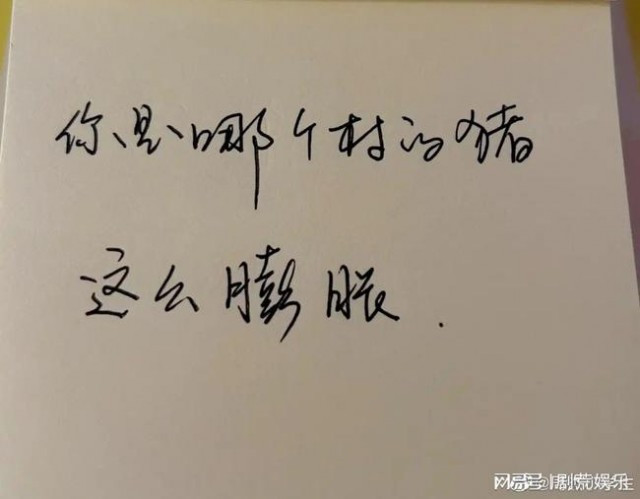 你是哪个村的猪
这么膨胀.
网易号
剧荒娱乐